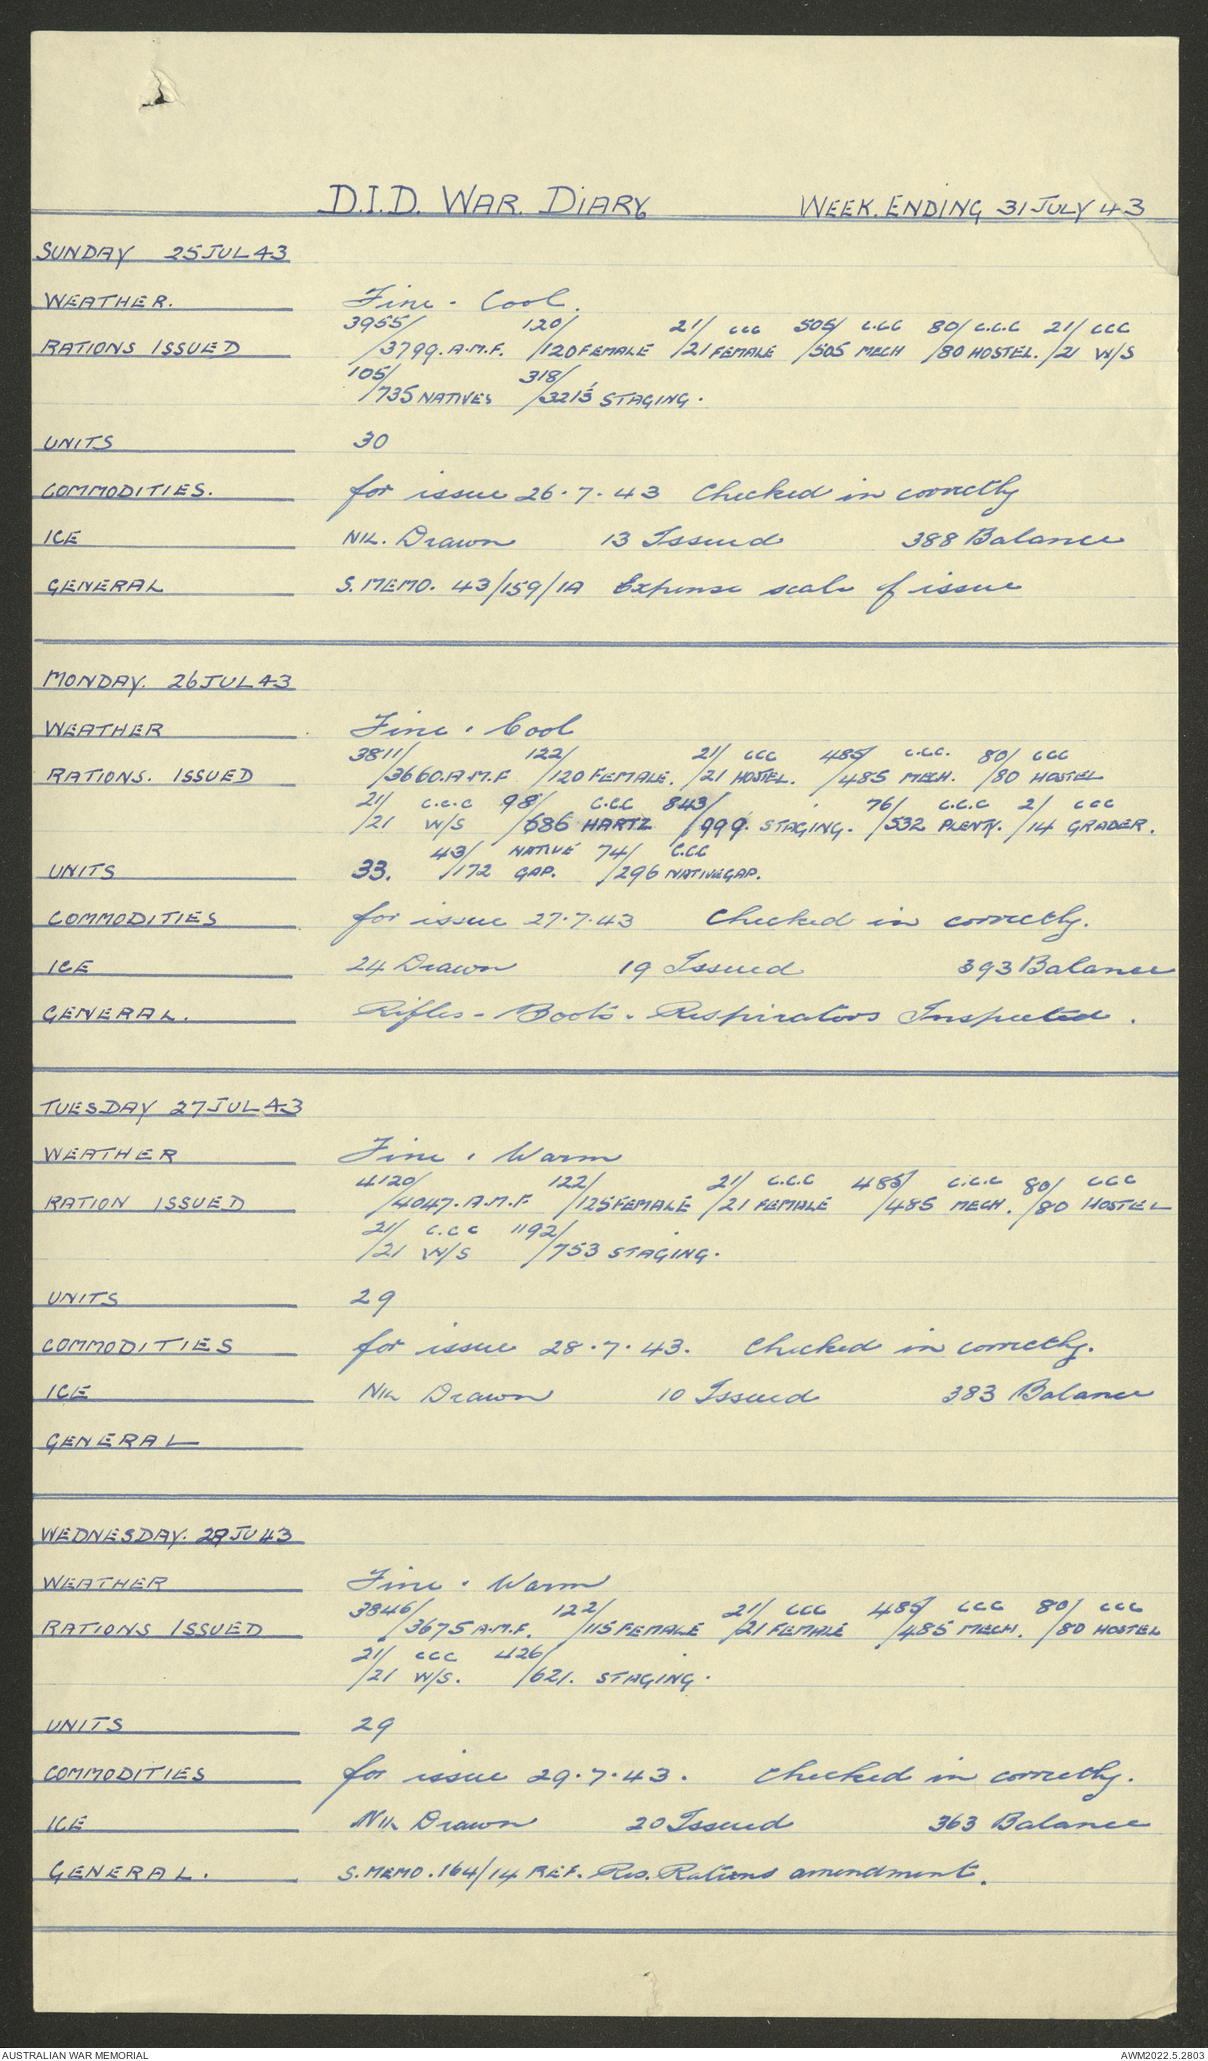 D.I.D. WAR. DIARY WEEK. ENDING 31 JULY 43
SUNDAY 25 JUL 43
WEATHER. Fine. Cool.
3955/ 120/ 21/ CCC 505/ C.CC 80/ C.C.C 21/ CCC
RATIONS ISSUED /3799. A.M.F. /120 FEMALE /21 FEMALE /505 MECH /80 HOSTEL. /21 W/S
105/ 318/
/735 NATIVES /321½ STAGING.
UNITS 30
COMMODITIES. for issue 26.7.43 Checked in correctly
ICE NIL. Drawn 13 Issued 388 Balance
GENERAL S. MEMO. 43/159/1A Expense scale of issue
MONDAY. 26 JUL 43
WEATHER Fine. Cool
3811/ 122/ 21/ CCC 485/ C.CC. 80/ CCC
RATIONS. ISSUED /3660. A.M.F /120 FEMALE. /21 HOSTEL. /485 MECH. /80 HOSTEL
21/ C.C.C 98/ C.CC 843/ 76/ C.C.C 2/ CCC
/21 W/S /686 HARTZ /999. STAGING. /532 PLENTY. /14 GRADER.
43/ NATIVE 74/ C.CC
UNITS 33. /172 GAP. /296 NATIVE GAP.
COMMODITIES for issue 27.7.43 Checked in correctly.
ICE 24 Drawn 19 Issued 393 Balance
GENERAL. Rifles - Boots. Respirators Inspected.
TUESDAY 27 JUL 43
WEATHER Fine. Warm
4120/ 122/ 21/ C.C.C 485/ C.C.C 80/ CCC
RATION ISSUED /4047. A.M.F /125 FEMALE /21 FEMALE /485 MECH. /80 HOSTEL
21/ C.CC 1192/
/21 W/S /753 STAGING.
UNITS 29
COMMODITIES for issue 28.7.43. Checked in correctly.
ICE NIL Drawn 10 Issued 383 Balance
GENERAL
WEDNESDAY. 28 JU 43
WEATHER Fine. Warm
3846/ 122/ 21/ CCC 485/ CCC 80/ CCC
RATIONS ISSUED /3675 A.M.F. /115 FEMALE /21 FEMALE /485 MECH. /80 HOSTEL
21/ CCC 426/
/21 W/S. /621. STAGING.
UNITS 29
COMMODITIES for issue 29.7.43. Checked in correctly.
ICE NIL Drawn 20 Issued 363 Balance
GENERAL. S. MEMO. 164/14 REF. Res. Rations amendment.
AUSTRALIAN WAR MEMORIAL AWM2022.5.2803